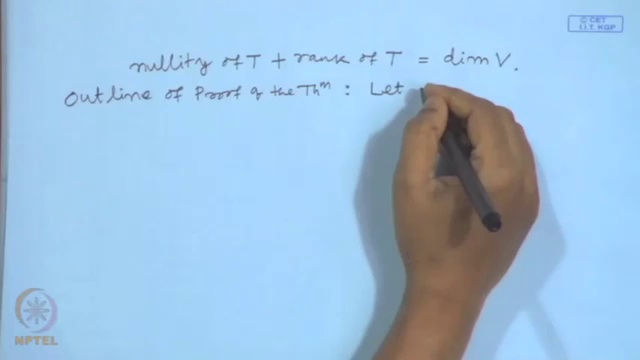 © CET
I.I.T. KGP
nullity of T + rank of T = dim V.
Outline of Proof of the Thᵐ : Let
NPTEL